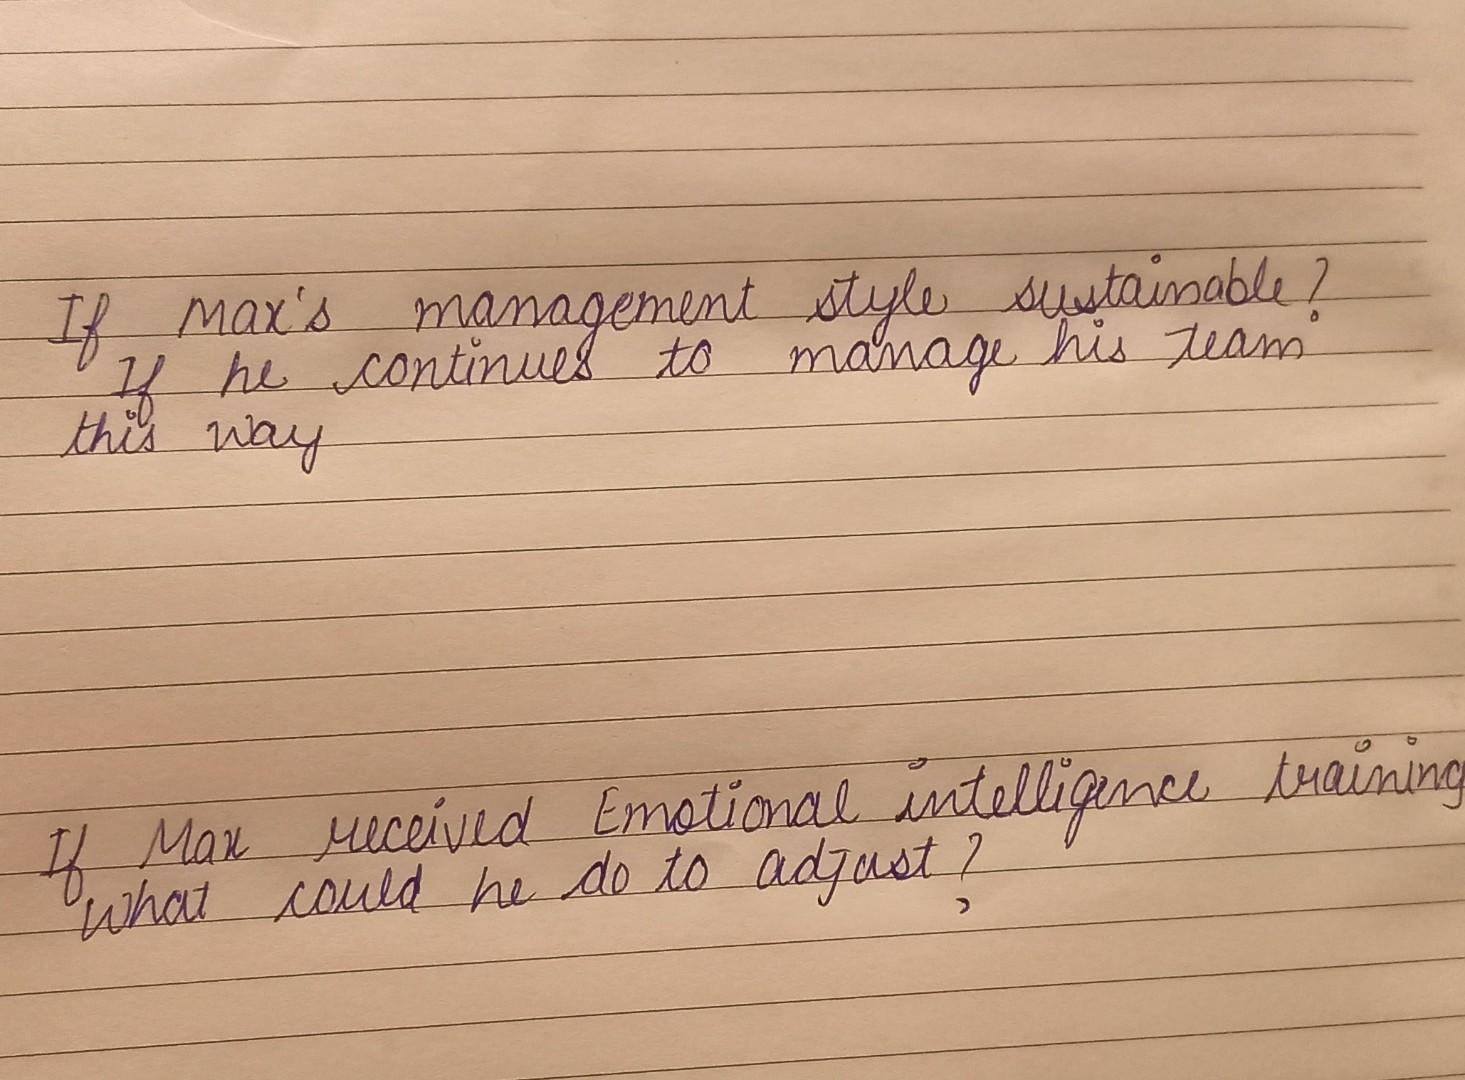 If Max's management style sustainable?
If he continues to manage his team
this way
If Max received Emotional intelligence training
what could he do to adjust?